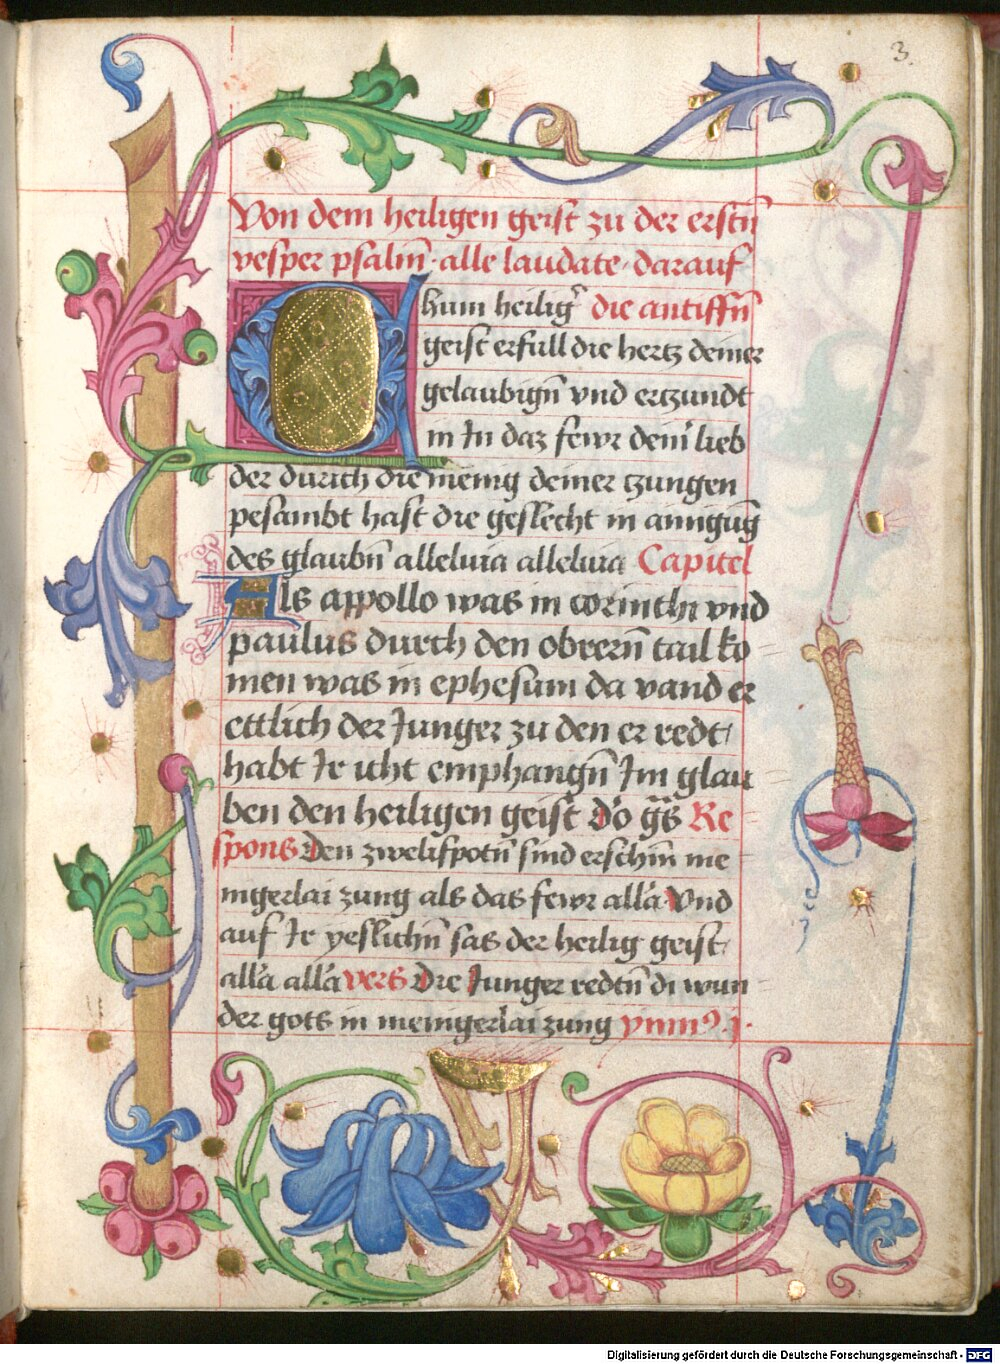 3.
Von dem heiligen geist zu der erstn̄
vesper psalm̄ · alle laudate · darauf
Chum heilig̉ die antiffn̄
geist erfull die hertz deiner
gelaubign̄ vnd ertzundt
in In daz fewr deinˀ lieb
der durich die menig deiner tzungen
pesambt hast die geslecht in ainigūg
des glaubn̄ alleluia alleluia Capitel
Als appollo was in corinthi vnd
paulus durch den obrern̄ tail ko
men was in ephesum da vand er
ettlich der Junger zu den er redt
habt Ir icht emphangn̄ Im glau
ben den heiligen geist Do gs̄ Re
spons Den zwelifpotn̄ sind erschin̄ me
nigerlai zung als das fewr all'a Vnd
auf Ir yeslichn̄ sas der heilig geist
all'a all'a vers Die Junger redtn̄ di wun
der gots in menigerlai zung ymnꝯ.j.
Digitalisierung gefördert durch die Deutsche Forschungsgemeinschaft - DFG